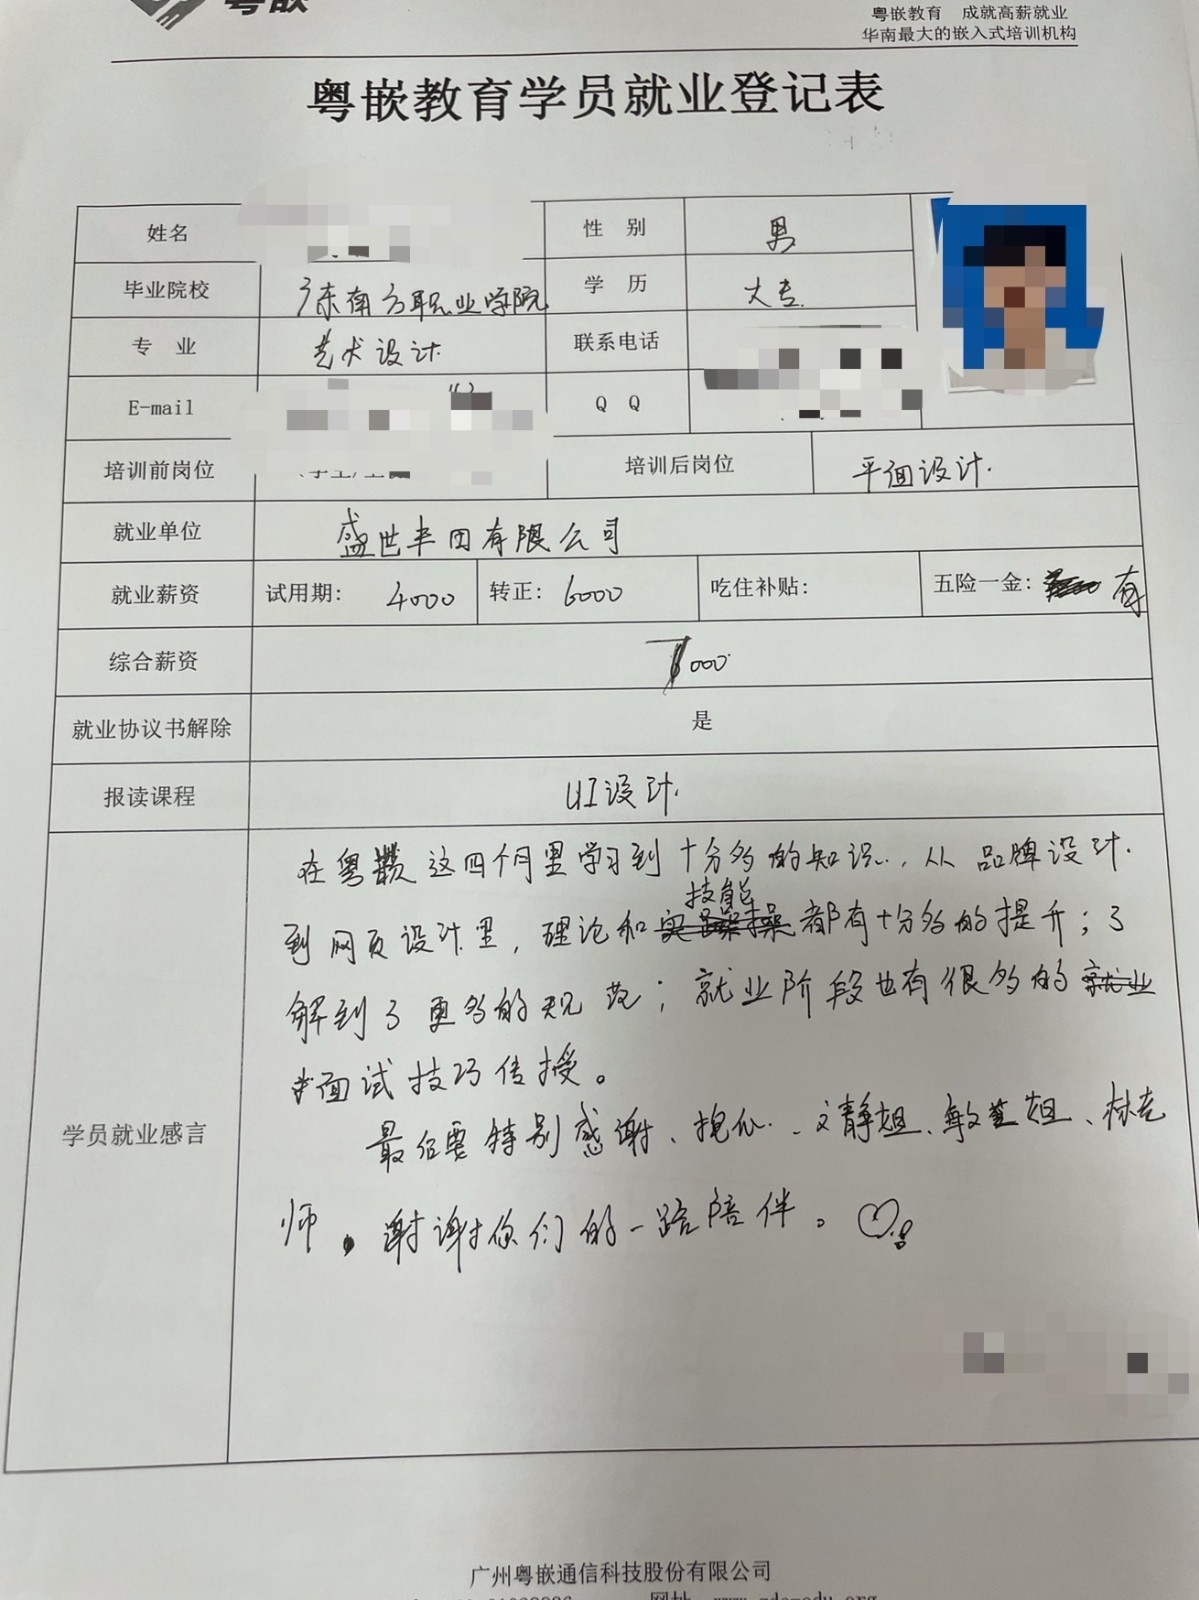 粤嵌
粤嵌教育 成就高薪就业
华南最大的嵌入式培训机构
粤嵌教育学员就业登记表
姓名 性 别 男
毕业院校 广东南方职业学院 学 历 大专
专 业 艺术设计 联系电话
E-mail Q Q
培训前岗位 培训后岗位 平面设计
就业单位 盛世丰田有限公司
就业薪资 试用期: 4000 转正: 6000 吃住补贴: 五险一金: 有
综合薪资 7000
就业协议书解除 是
报读课程 UI设计
学员就业感言
在粤嵌这四个月里学习到十分多的知识,从品牌设计
技能
到网页设计里,理论和都有十分多的提升;了
解到了更多的规范;就业阶段也有很多的就业
面试技巧传授。
最后要特别感谢、、文静姐、敏姐、林老
师。谢谢你们的一路陪伴。
广州粤嵌通信科技股份有限公司